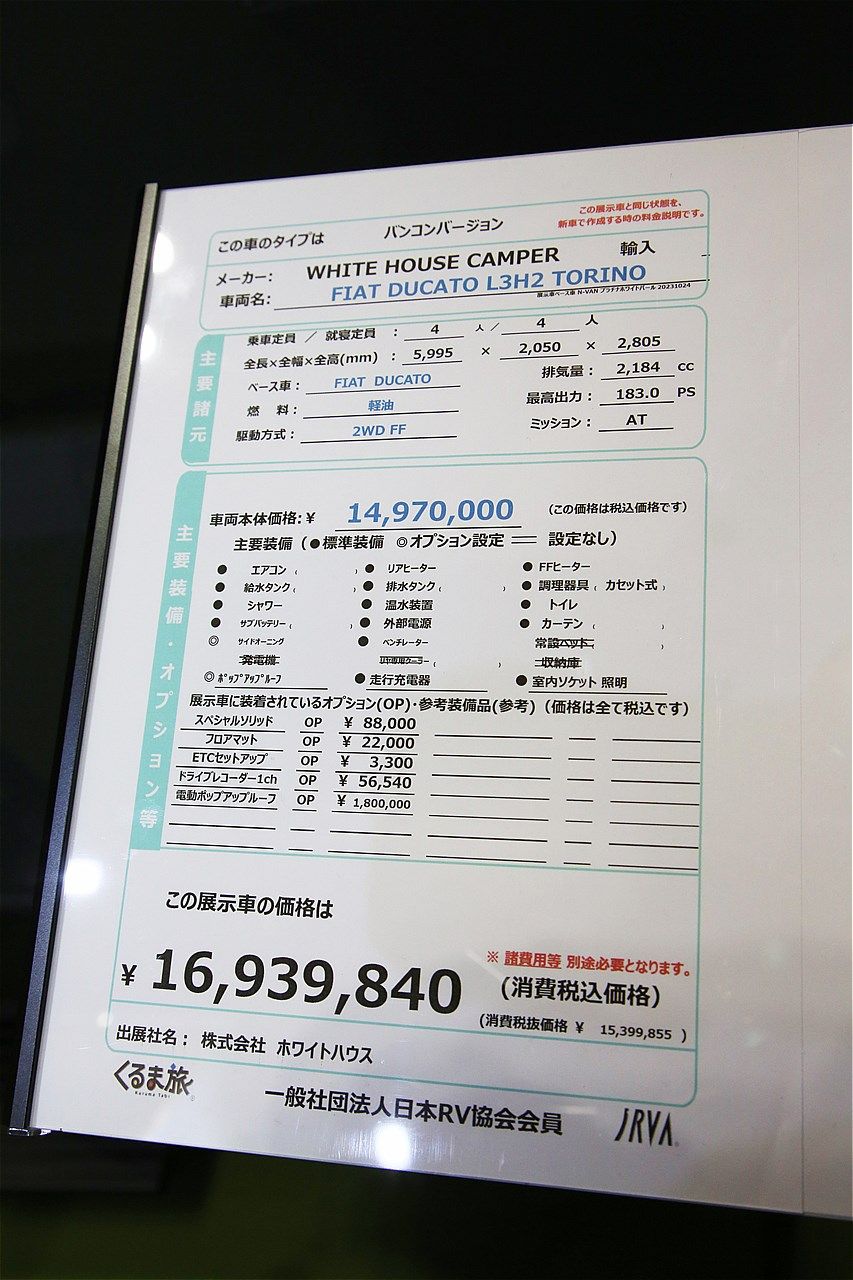 この車のタイプは バンコンバージョン
この展示車と同じ状態を、
新車で作成する時の料金説明です。
メーカー: WHITE HOUSE CAMPER 輸入
車両名: FIAT DUCATO L3H2 TORINO
展示車ベース車 N-VAN プラチナホワイトパール 20231024
主要諸元
乗車定員 ／ 就寝定員 : 4 人 ／ 4 人
全長×全幅×全高(mm) : 5,995 × 2,050 × 2,805
ベース車 : FIAT DUCATO 排気量 : 2,184 cc
燃 料 : 軽油 最高出力 : 183.0 PS
駆動方式 : 2WD FF ミッション : AT
主要装備・オプション等
車両本体価格:￥ 14,970,000 (この価格は税込価格です)
主要装備 (●標準装備 ◎オプション設定 ══ 設定なし)
● エアコン ( ) ● リアヒーター ● FFヒーター
● 給水タンク ( ) ● 排水タンク ( ) ● 調理器具 ( カセット式 )
● シャワー ● 温水装置 ● トイレ
● サブバッテリー ( ) ● 外部電源 ● カーテン ( )
◎ サイドオーニング ● ベンチレーター 常設ベット
発電機 ( ) 収納庫
◎ ﾎﾟｯﾌﾟｱｯﾌﾟﾙｰﾌ ● 走行充電器 ● 室内ソケット 照明
展示車に装着されているオプション(OP)・参考装備品(参考) (価格は全て税込です)
スペシャルソリッド OP ￥ 88,000
フロアマット OP ￥ 22,000
ETCセットアップ OP ￥ 3,300
ドライブレコーダー1ch OP ￥ 56,540
電動ポップアップルーフ OP ￥ 1,800,000
この展示車の価格は
￥ 16,939,840
※ 諸費用等 別途必要となります。
(消費税込価格)
(消費税抜価格 ￥ 15,399,855 )
出展社名 : 株式会社 ホワイトハウス
くるま旅
Kuruma Tabi
一般社団法人日本RV協会会員
JRVA